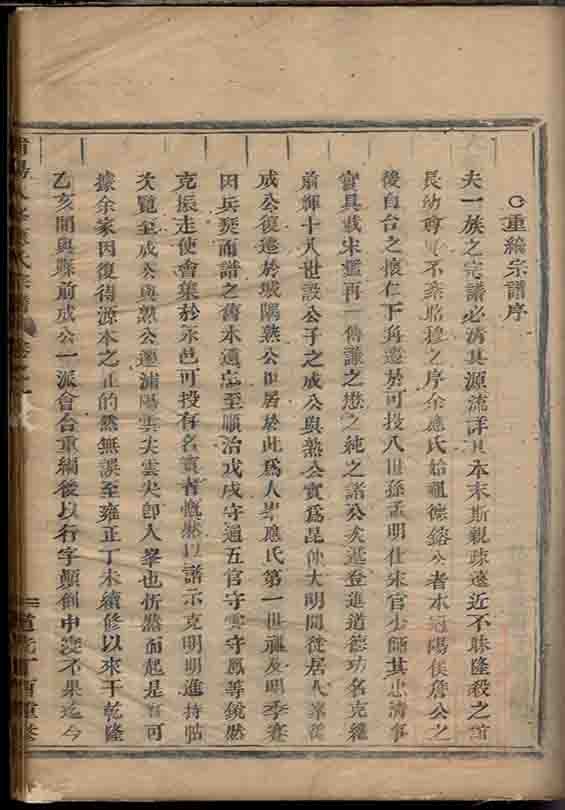 重編宗譜序
夫一族之宗譜必清其源流詳其本末斯親疎遠近不昧隆殺之誼
長幼尊卑不紊昭穆之序余應氏始祖德鎔公者本冠陽侯詹公之
後自台之懷仁下角遷於可投八世孫孟明仕宋官少師其忠清事
實具載宋鑑再一傳謙之懋之純之諸公矣遞登進道德功名克繼
前輝十八世設公子之成公與熟公實為昆仲大明間徙居人峯
成公復遷於城隅熟公世居於此為人峯應氏第一世祖及明季
因兵燹而譜之舊本遺忘至順治戊戌守通五官守雲守鳳等鏡然
克振走使會集於永邑可投有名賓者慨然以譜示克明明進持帖
次覽至成公與熟公遷浦陽雲尖雲尖卽人峯也忻然而起是可
據余家因復得源本之正的然無誤至雍正丁未續修以來于乾隆
乙亥間與縣前成公一派會台重編後以行字顛倒中變不果迄今
氏宗譜
道光丁酉重修